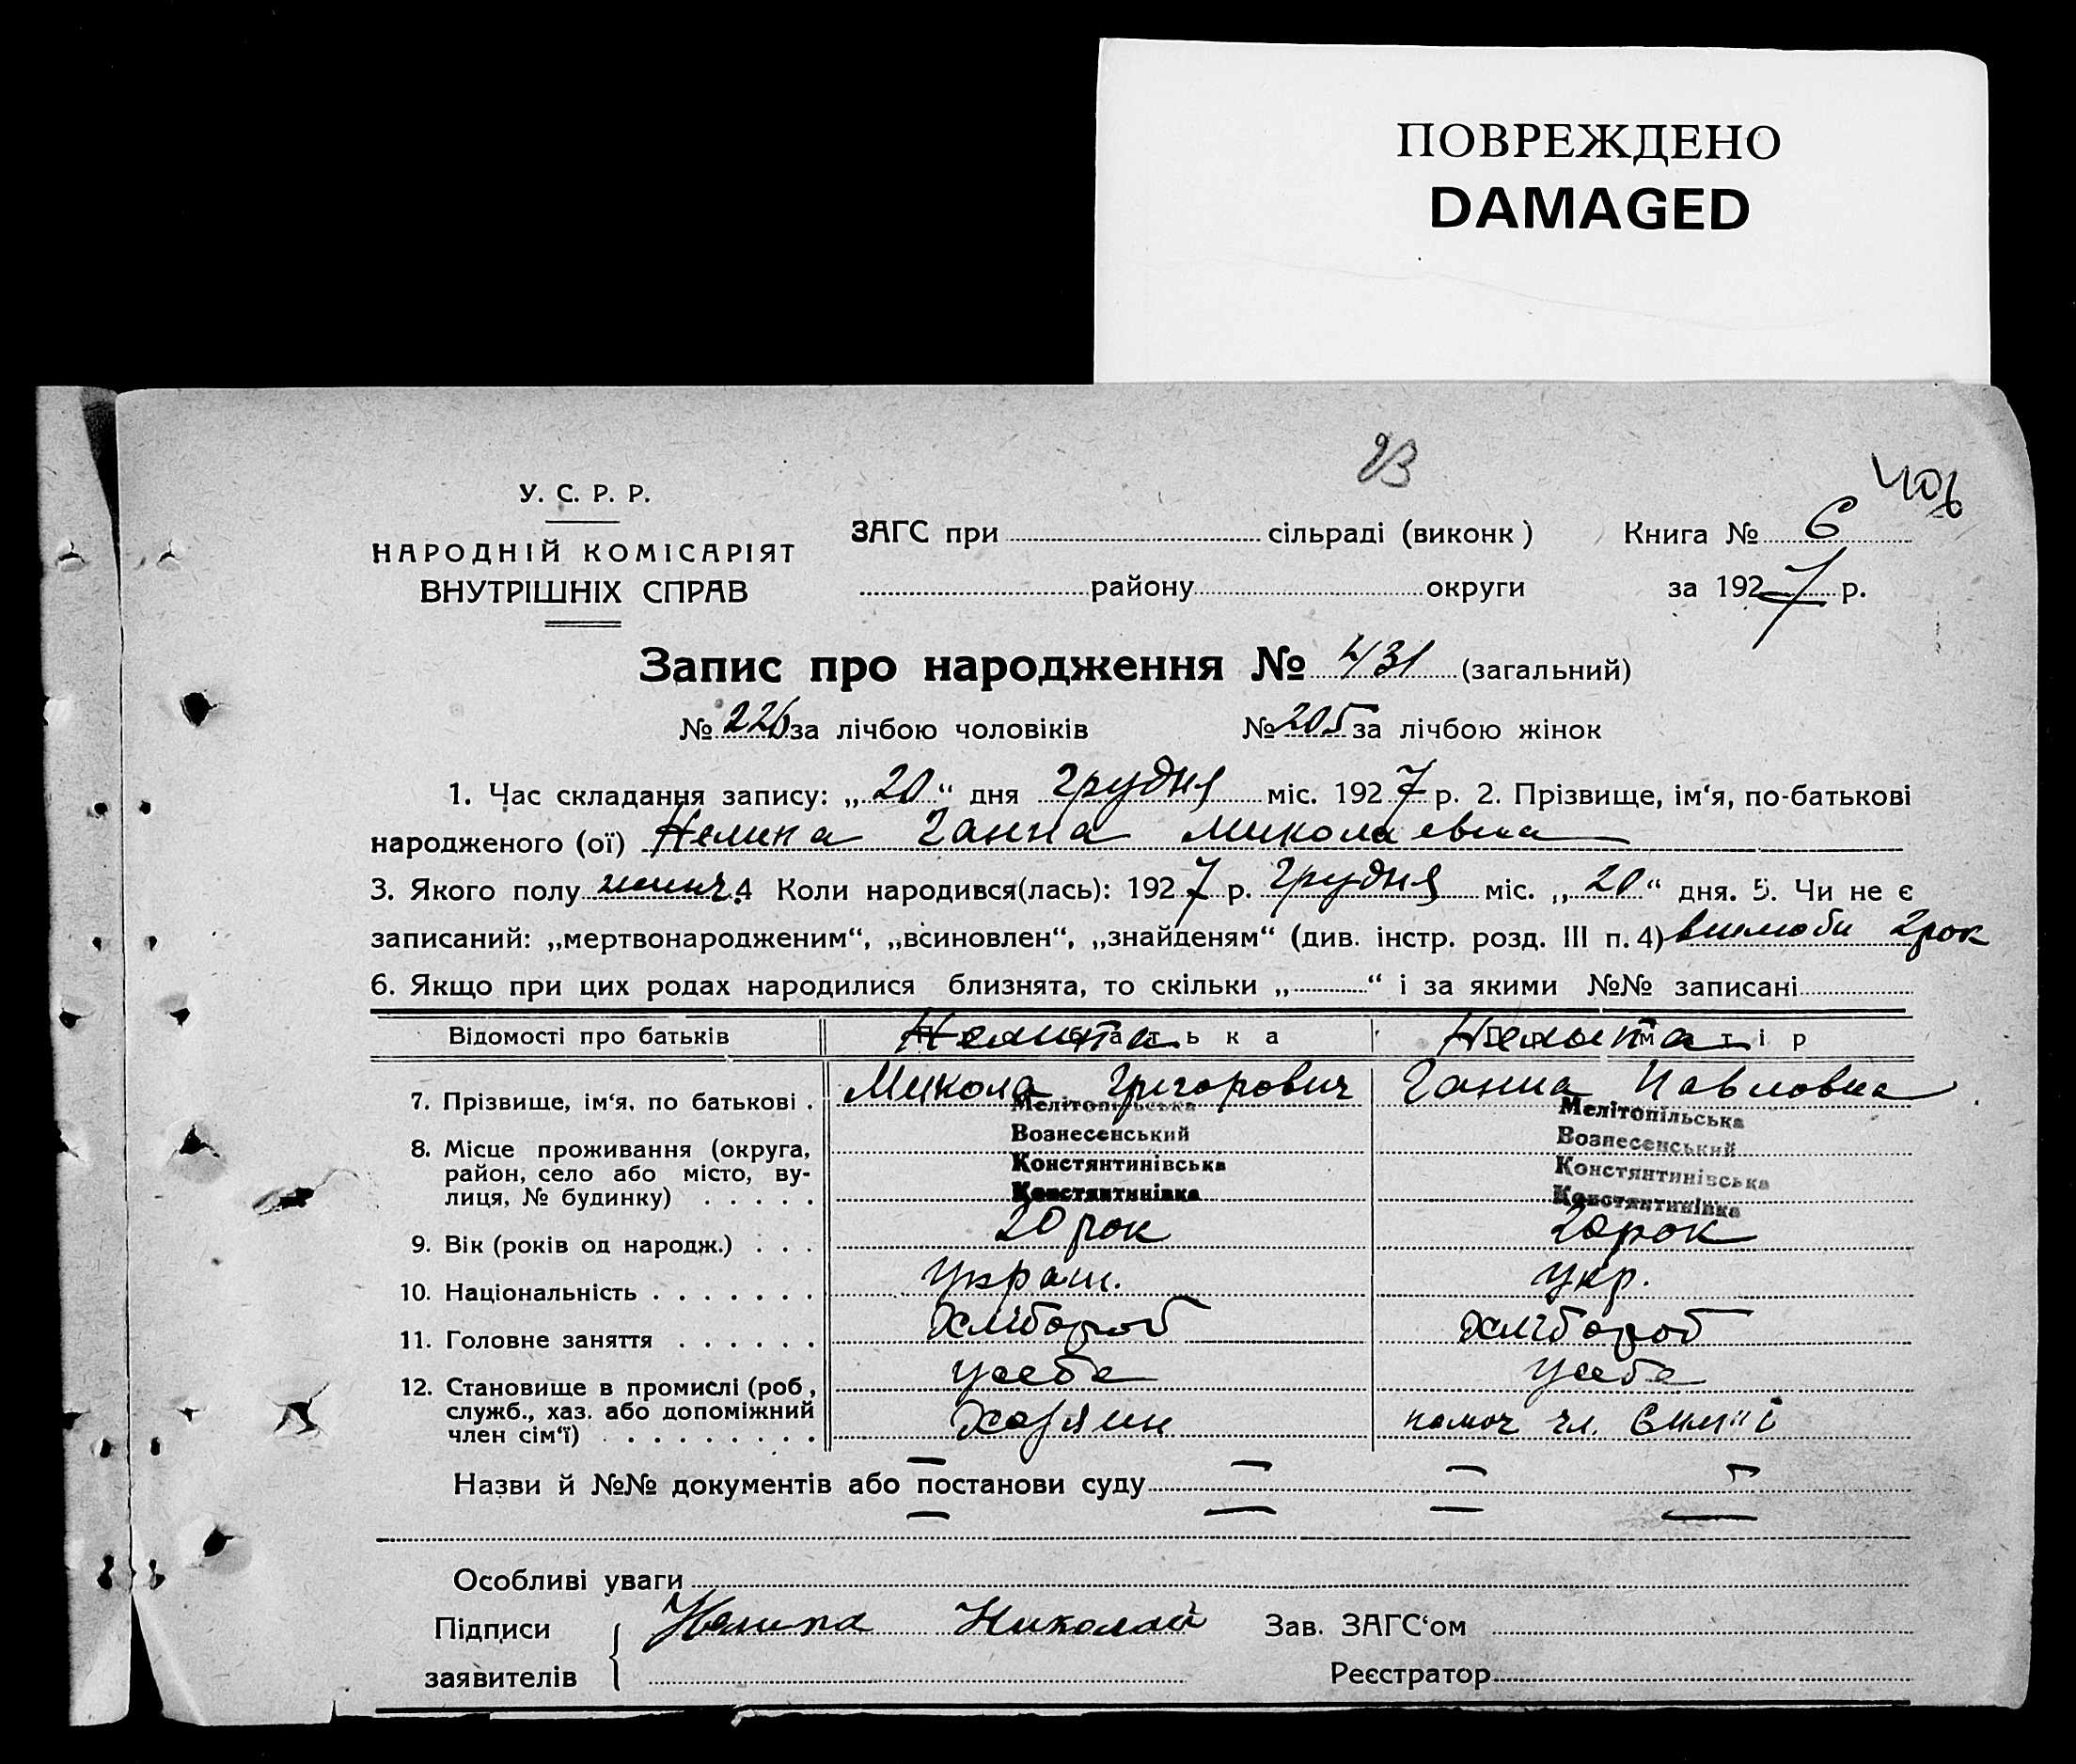 ПОВРЕЖДЕНО
DAMAGED
23
406
У. С. Р. Р.
НАРОДНІЙ КОМІСАРІЯТ
ВНУТРІШНІХ СПРАВ
ЗАГС при сільраді (виконк)
району округи
Книга № 6
за 1927 р.
Запис про народження № 431 (загальний)
№ 226 за лічбою чоловіків № 205 за лічбою жінок
1. Час складання запису: „20“ дня Грудня міс. 1927 р. 2. Прізвище, ім‘я, по-батькові
народженого (ої) Нелипа Ганна Миколаевна
3. Якого полу 4 Коли народився(лась): 1927 р. Грудня міс. „20“ дня. 5. Чи не є
записаний: „мертвонародженим“, „всиновлен“, „знайденям“ (див. інстр. розд. III п. 4) вшлюби 2рок
6. Якщо при цих родах народилися близнята, то скільки „ “ і за якими №№ записані
Відомості про батьків Нелипа батька Нелыпа матір
7. Прізвище, ім‘я, по батькові . Микола Григорович Ганна Павловна
8. Місце проживання (округа, район, село або місто, ву-лиця, № будинку) . . . . .
Мелітопільська Мелітопільська
Вознесенський Вознесенський
Констянтинівська Констянтинівська
Констянтинівка Констянтинівка
9. Вік (років од народж.) . . . 20 рок 20 рок
10. Національність . . . . . . . Украін. Укр.
11. Головне заняття . . . . . . Хлібороб Хлібороб
12. Становище в промислі (роб, служб., хаз. або допоміжний член сім‘ї) . . . . . . . . .
усебе усебе
Хазяин помоч чл. Симї
Назви й №№ документів або постанови суду — — — —
— — — —
Особливі уваги
Підписи заявителів { Нелипа Николай
Зав. ЗАГС‘ом
Реєстратор